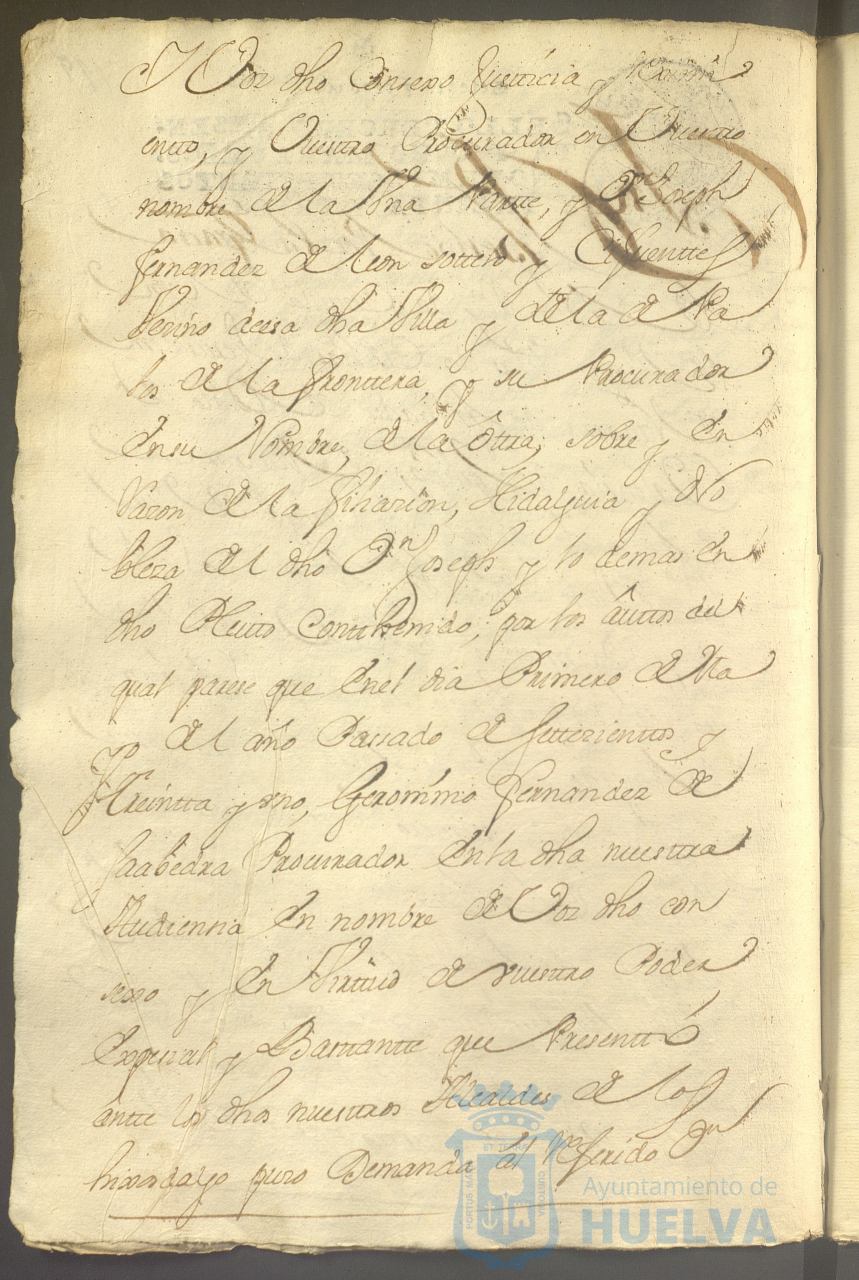 Y Vos dho Consexo Justicia y Rexim
ento, y Vuestro Procurador en Vuestro
nombre de la Una Partte, y Dn Joseph
fernandez de leon sottelo y Cifuenttes
Vecino de esa dha Villa y de la de Pa
los de la fronttera, y su Procurador
en su Nombre, de la ôttra, sobre y en
Razon de la filiazion, Hidalguia y No
bleza del dho Dn Joseph y lo demas en
dho Pleitto Contthenido, por los âuttos del
qual parese que en el dia Primero de Ma
yo del año Passado de settezienttos y
Treintta y uno, Geronimo fernandez de
saabedra Procurador en la dha nuestra
Audiencia en nombre de Vos dho con
sexo y en Virttud de vuestro Poder
Especial y Basttantte que Presenttó
antte los dhos nuestros Alcaldes de los
hixosdalgo puso Demanda al referido Dn
Ayuntamiento de
HUELVA